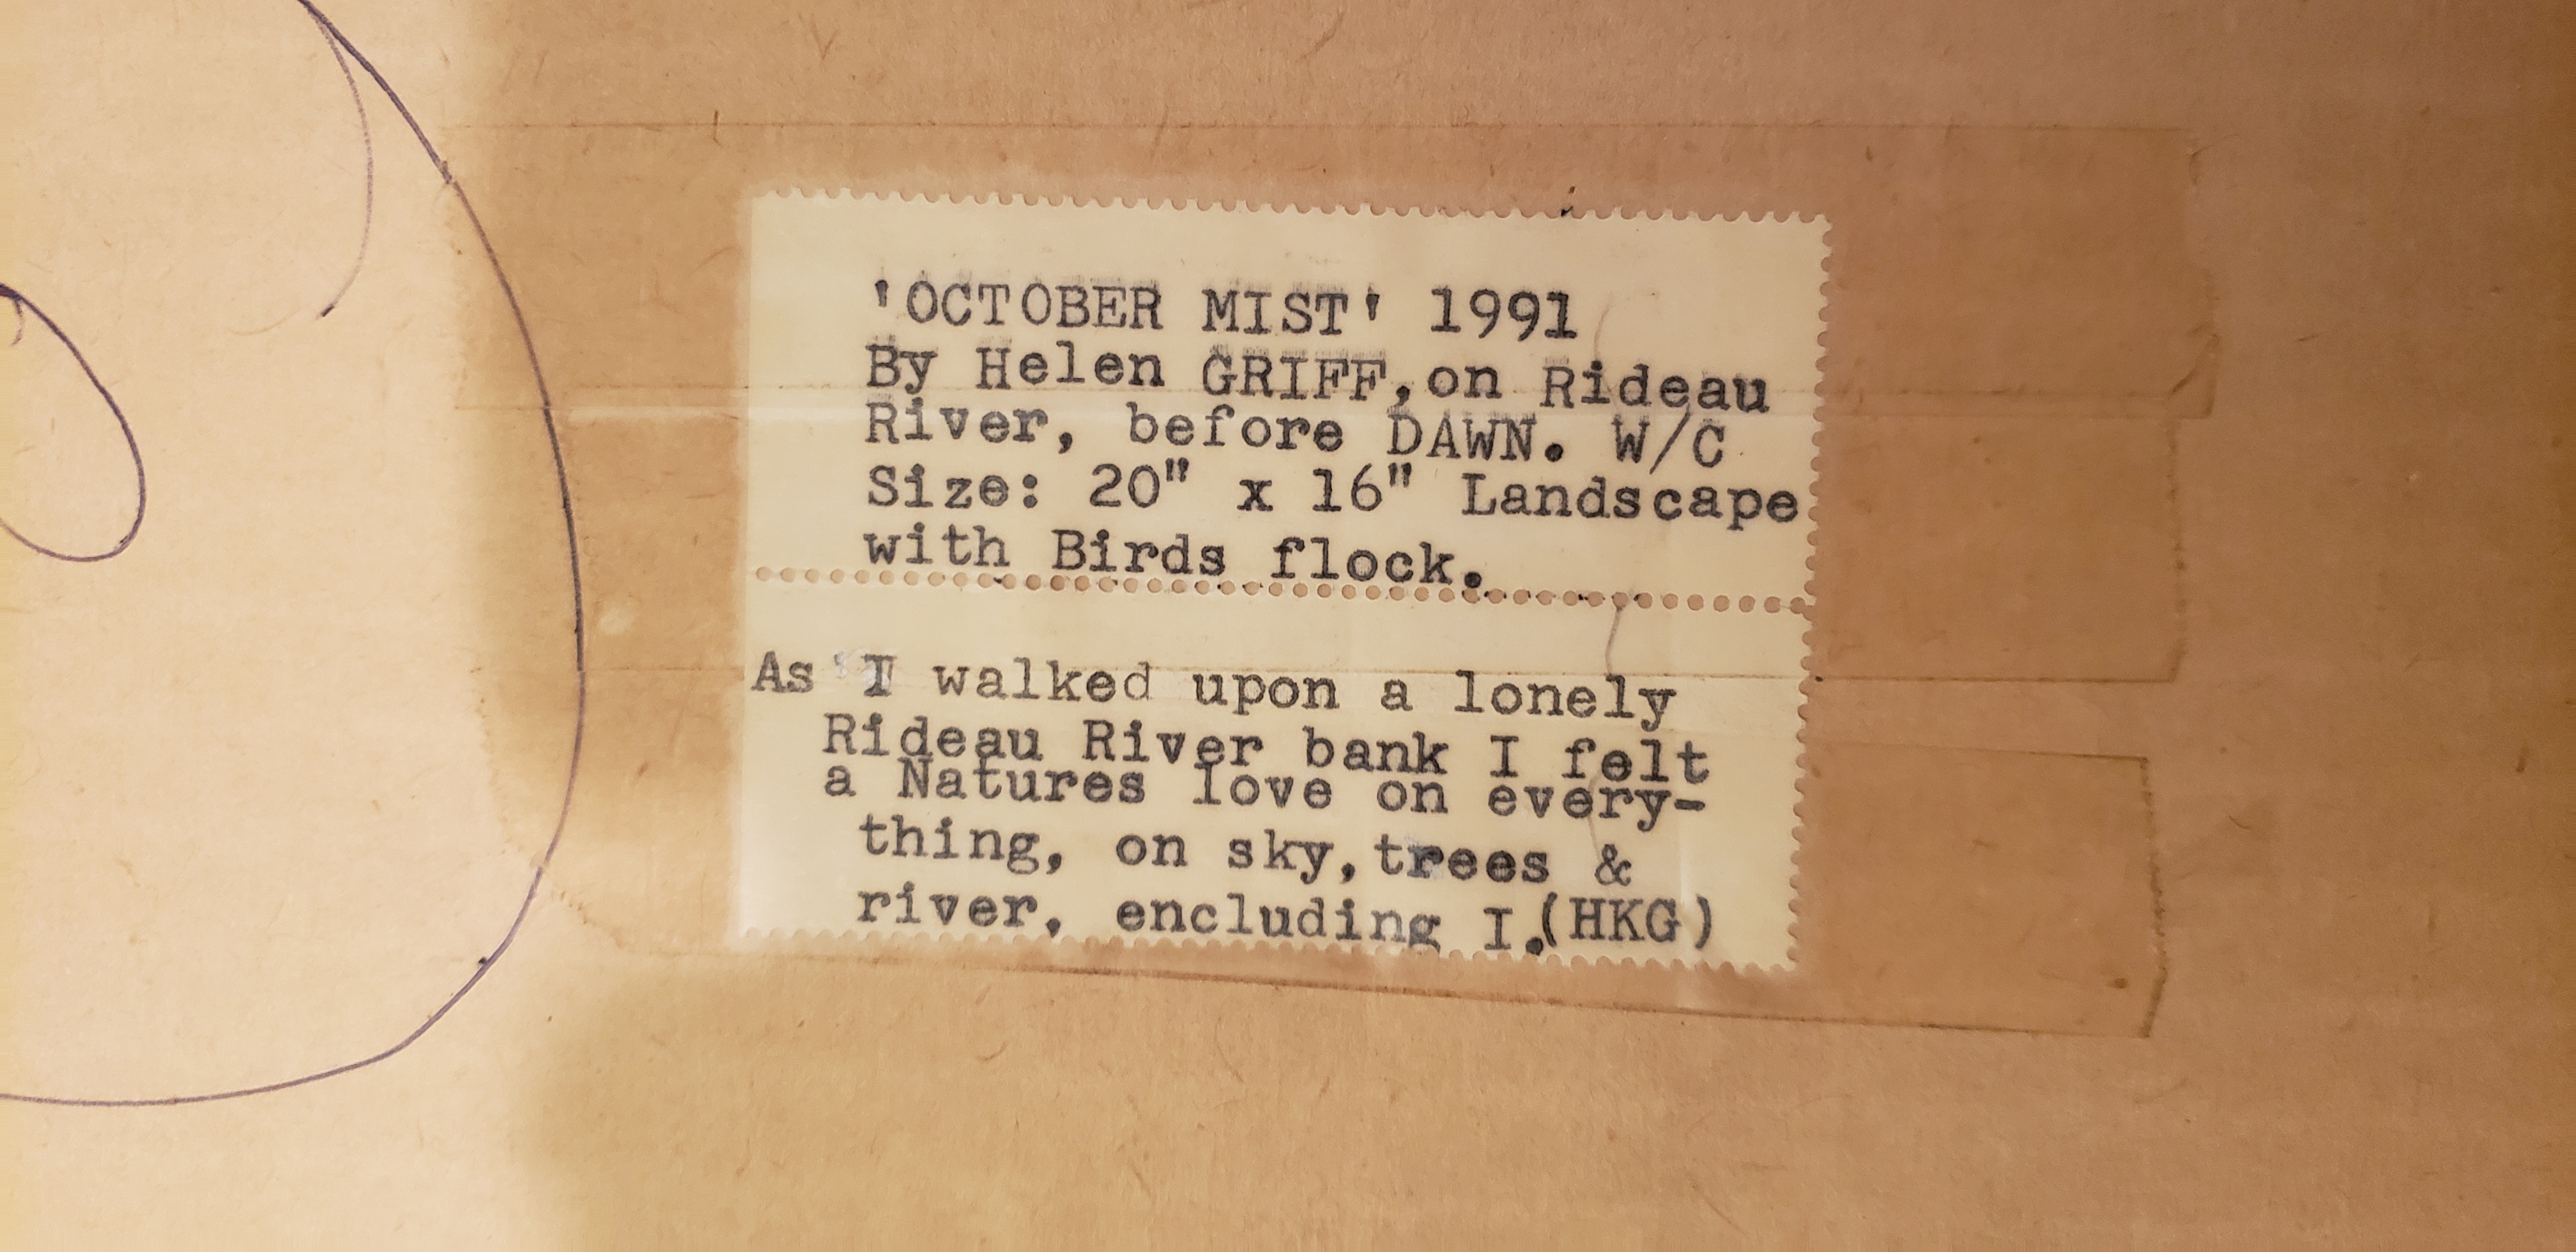 'OCTOBER MIST' 1991
By Helen GRIFF,on Rideau
River, before DAWN. W/C
Size: 20" x 16" Landscape
with Birds flock.
As I walked upon a lonely
Rideau River bank I felt
a Natures love on every-
thing, on sky,trees &
river, encluding I.(HKG)